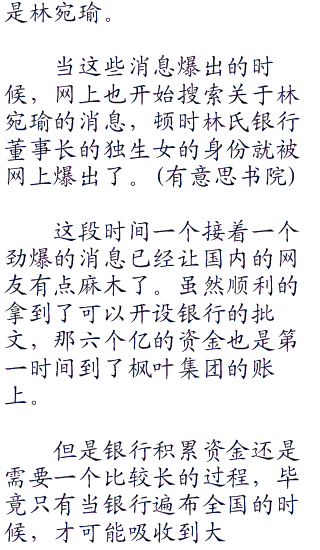 是林宛瑜。
当这些消息爆出的时
候，网上也开始搜索关于林
宛瑜的消息，顿时林氏银行
董事长的独生女的身份就被
网上爆出了。(有意思书院)
这段时间一个接着一个
劲爆的消息已经让国内的网
友有点麻木了。虽然顺利的
拿到了可以开设银行的批
文，那六个亿的资金也是第
一时间到了枫叶集团的账
上。
但是银行积累资金还是
需要一个比较长的过程，毕
竟只有当银行遍布全国的时
候，才可能吸收到大